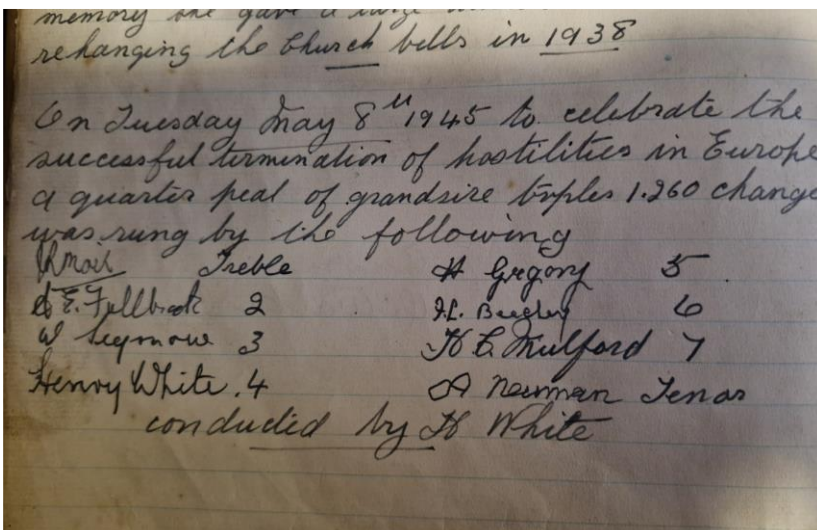 memory she gave a large
rehanging the Church bells in 1938
On Tuesday May 8th 1945 to celebrate the
successful termination of hostilities in Europe
a quarter peal of grandsire triples 1.260 change
was rung by the following
Treble H Gregory 5
E. Fullbrook 2 6
W Seymour 3 H C Mulford 7
Henry White. 4 A Newman Tenor
conducted by H White